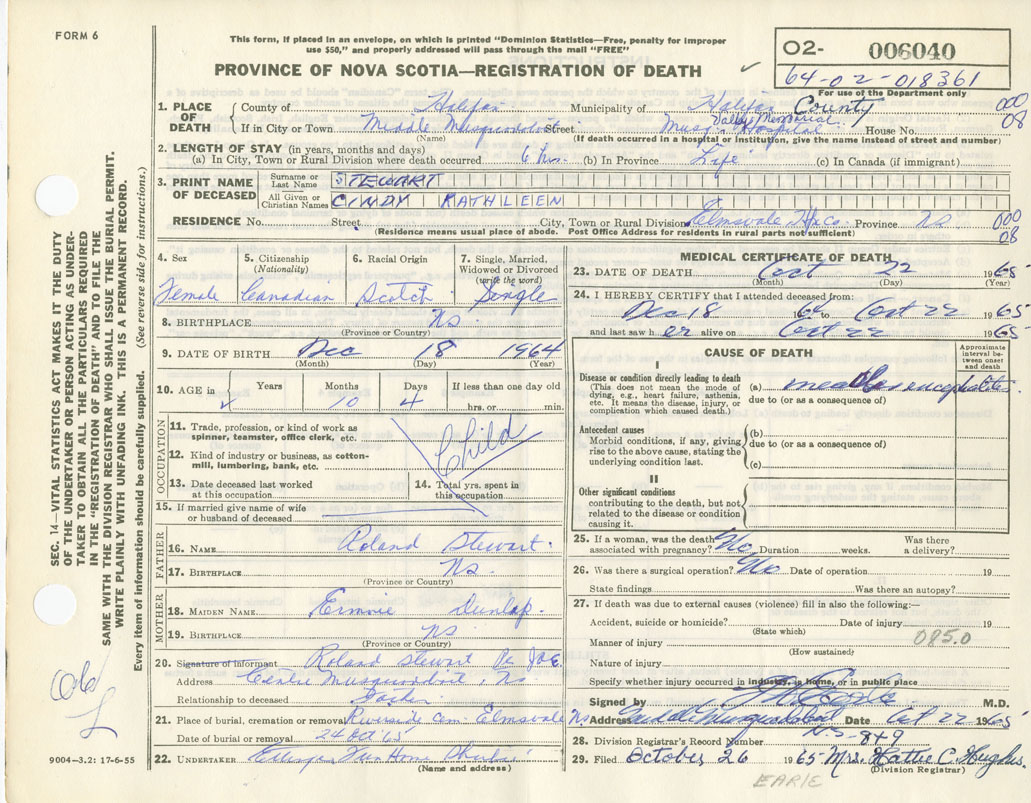 FORM 6
This form, if placed in an envelope, on which is printed "Dominion Statistics—Free, penalty for improper
use $50," and properly addressed will pass through the mail "FREE"
PROVINCE OF NOVA SCOTIA—REGISTRATION OF DEATH
02- 006040
64-02-018361
For use of the Department only
1. PLACE OF DEATH
County of Halifax Municipality of Halifax County 000
If in City or Town Middle Musquodoboit Street Musq. Valley Memorial Hospital House No. 08
(Name) (If death occurred in a hospital or institution, give the name instead of street and number)
2. LENGTH OF STAY (in years, months and days)
(a) In City, Town or Rural Division where death occurred 6 hrs. (b) In Province Life (c) In Canada (if immigrant)
3. PRINT NAME OF DECEASED
Surname or Last Name STEWART
All Given or Christian Names CINDY KATHLEEN
RESIDENCE No. Street City, Town or Rural Division Elmsvale Hfx Co. Province NS 000
(Residence means usual place of abode. Post Office Address for residents in rural parts not sufficient) 08
4. Sex Female
5. Citizenship (Nationality) Canadian
6. Racial Origin Scotch
7. Single, Married, Widowed or Divorced (write the word) Single
8. BIRTHPLACE NS
(Province or Country)
9. DATE OF BIRTH Dec 18 1964
(Month) (Day) (Year)
10. AGE in Years Months 10 Days 4 If less than one day old hrs. or min.
OCCUPATION
11. Trade, profession, or kind of work as spinner, teamster, office clerk, etc.
Child
12. Kind of industry or business, as cotton-mill, lumbering, bank, etc.
13. Date deceased last worked at this occupation
14. Total yrs. spent in this occupation
15. If married give name of wife or husband of deceased
FATHER
16. NAME Roland Stewart
17. BIRTHPLACE NS.
(Province or Country)
MOTHER
18. MAIDEN NAME Dunlap
19. BIRTHPLACE NS
(Province or Country)
20. Signature of informant Roland Stewart Per
Address Centre Musquodoboit, NS
Relationship to deceased Father
21. Place of burial, cremation or removal Riverside Cem. Elmsvale NS
Date of burial or removal 24 Oct 65
22. UNDERTAKER Fun Home
(Name and address)
MEDICAL CERTIFICATE OF DEATH
23. DATE OF DEATH Oct 22 1965
(Month) (Day) (Year)
24. I HEREBY CERTIFY that I attended deceased from:
Dec 18 to Oct 22 1965
and last saw her alive on Oct 22 1965
CAUSE OF DEATH
Approximate interval between onset and death
I
Disease or condition directly leading to death
(This does not mean the mode of dying, e.g., heart failure, asthenia, etc. It means the disease, injury, or complication which caused death.)
(a) measles encephalitis
due to (or as a consequence of)
Antecedent causes
Morbid conditions, if any, giving rise to the above cause, stating the underlying condition last.
(b)
due to (or as a consequence of)
(c)
II
Other significant conditions
contributing to the death, but not related to the disease or condition causing it.
25. If a woman, was the death associated with pregnancy? No Duration weeks. Was there a delivery?
26. Was there a surgical operation? No Date of operation 19
State findings Was there an autopsy?
27. If death was due to external causes (violence) fill in also the following:—
Accident, suicide or homicide? Date of injury 19
(State which)
085.0
Manner of injury
(How sustained)
Nature of injury
Specify whether injury occurred in industry, in home, or in public place
Signed by M.D.
Address Middle Musquodoboit Date Oct 22 1965
NS-849
28. Division Registrar's Record Number
29. Filed October 26 1965 Mrs. Hattie C. Hughes.
(Division Registrar)
EARLE
SEC. 14—VITAL STATISTICS ACT MAKES IT THE DUTY
OF THE UNDERTAKER OR PERSON ACTING AS UNDER-
TAKER TO OBTAIN ALL THE PARTICULARS REQUIRED
IN THE "REGISTRATION OF DEATH" AND TO FILE THE
SAME WITH THE DIVISION REGISTRAR WHO SHALL ISSUE THE BURIAL PERMIT.
WRITE PLAINLY WITH UNFADING INK. THIS IS A PERMANENT RECORD.
Every item of information should be carefully supplied. (See reverse side for instructions.)
9004—3.2: 17-6-55